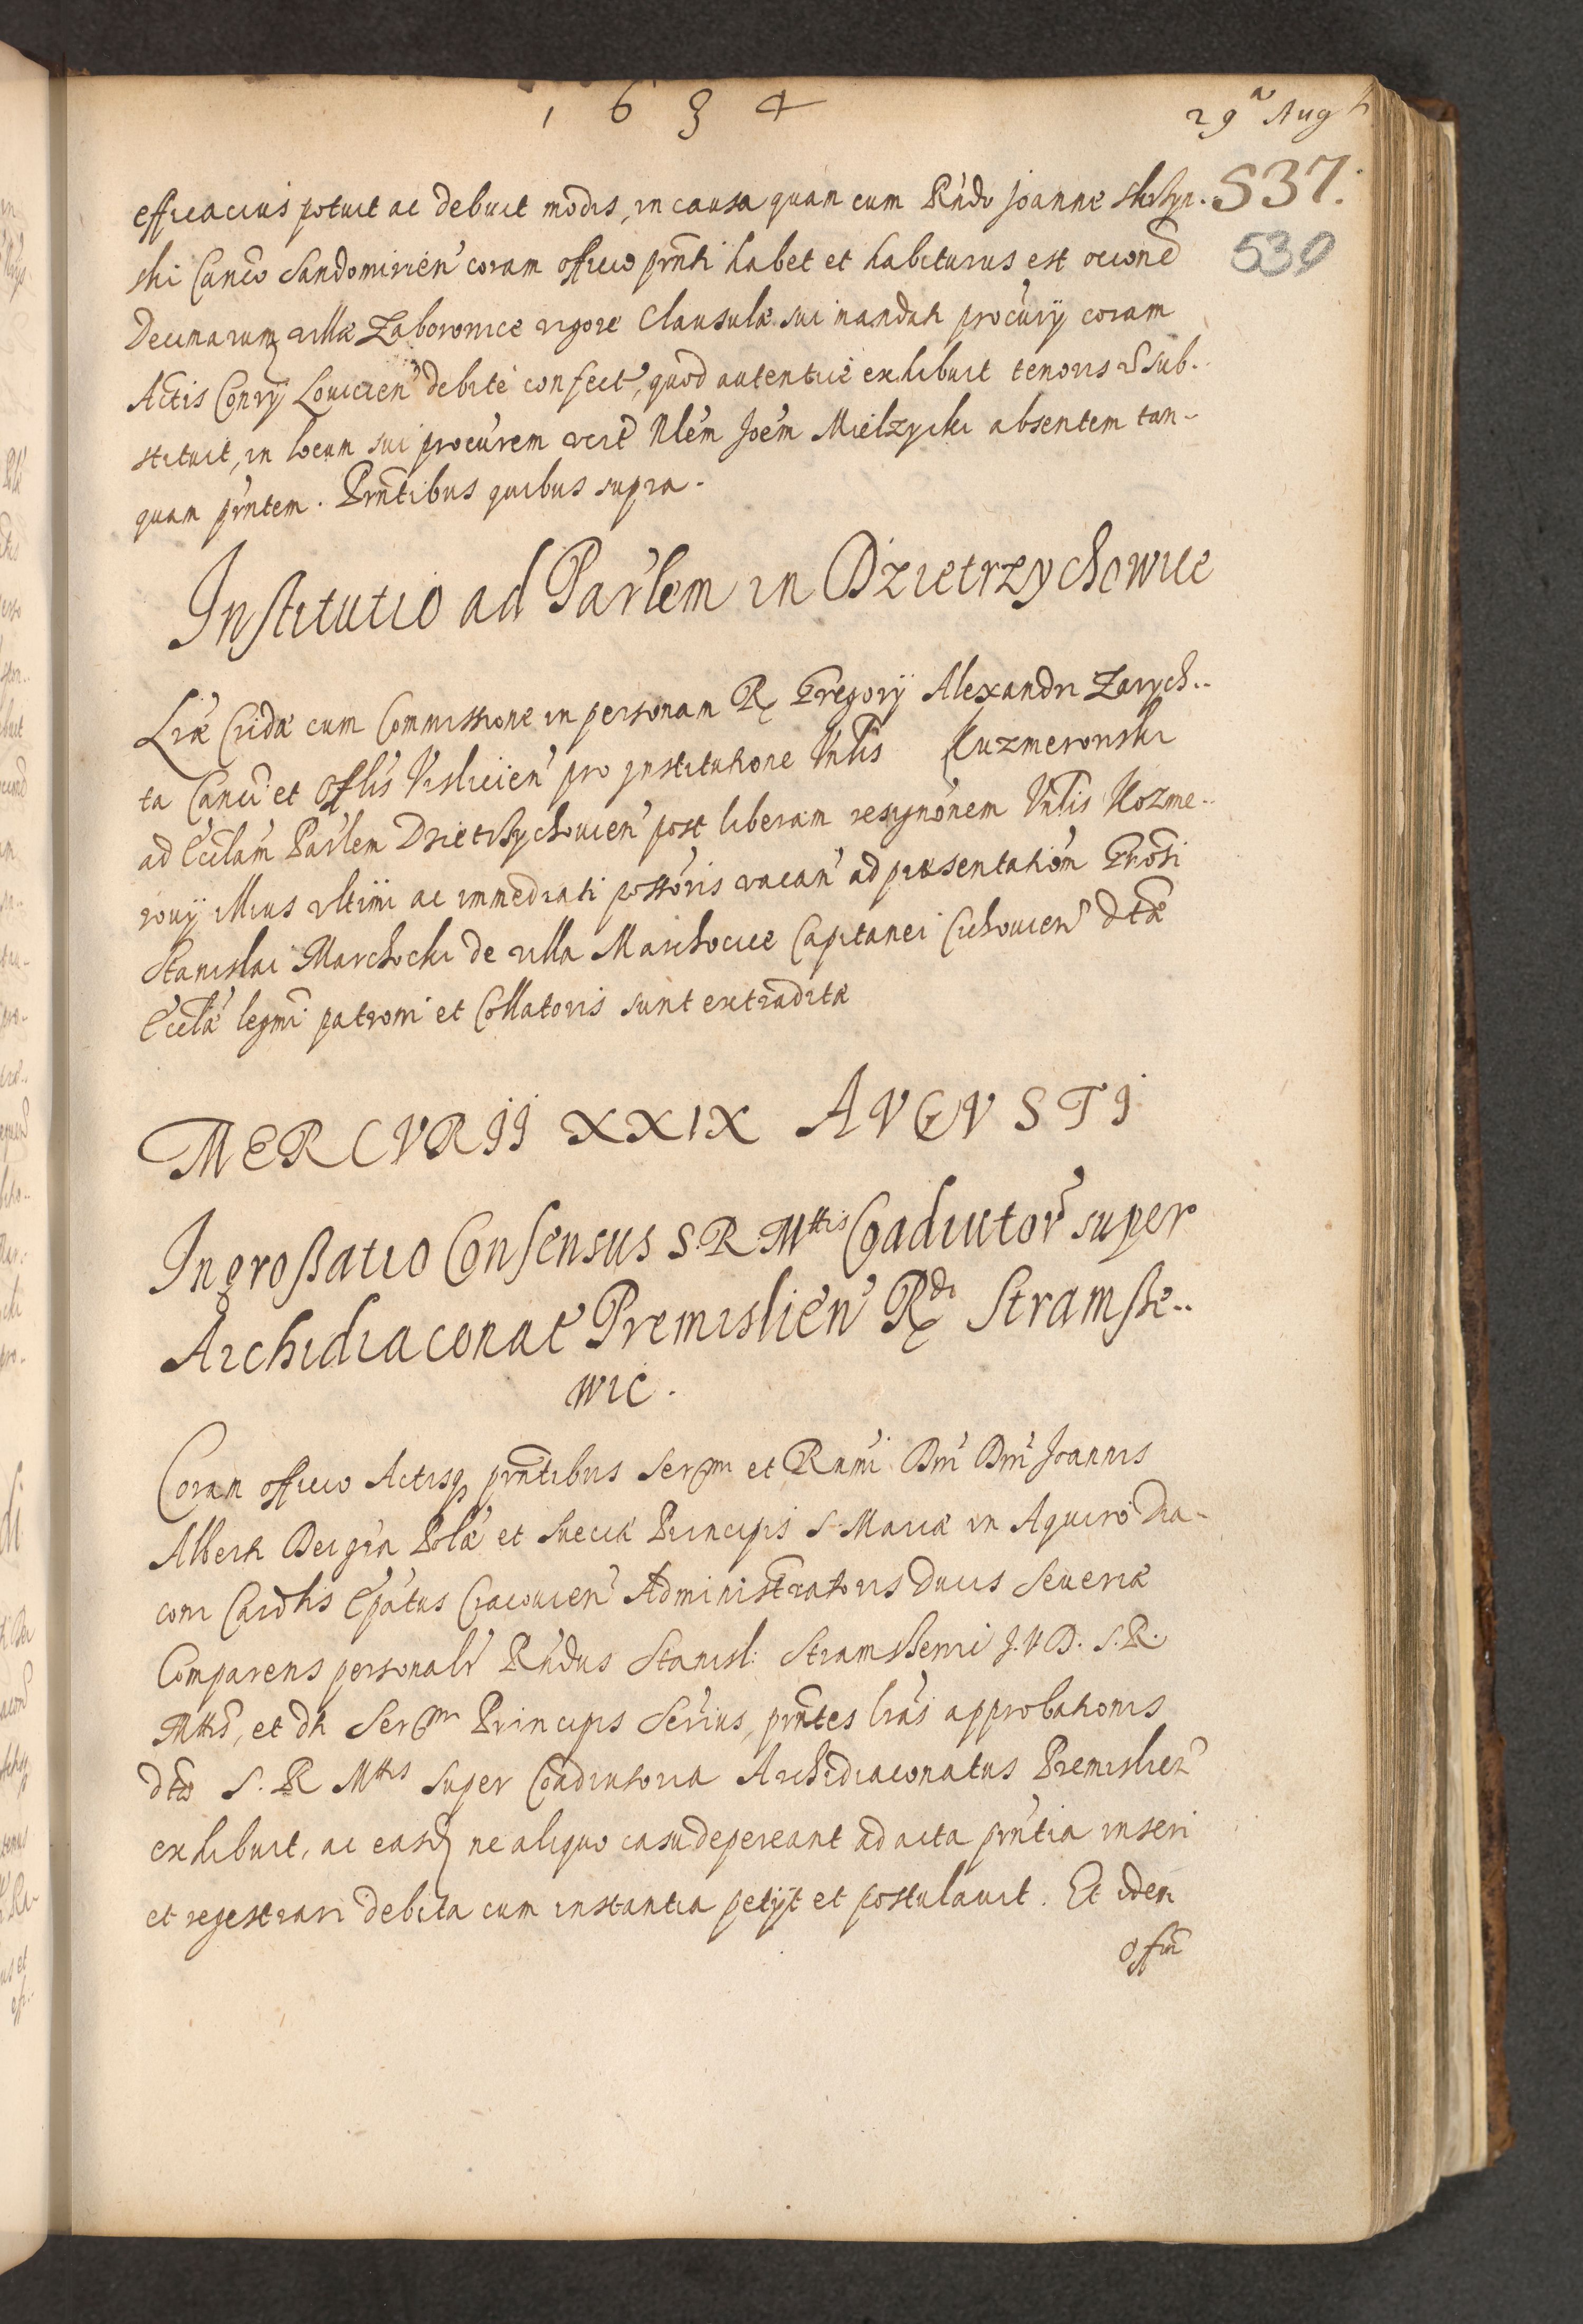 1634
29ª Aug
537.
539
efficacius potuit ac debuit modis, in causa quam cum Rndo Joanne
ski Canco Sandomirien coram officio prnti habet et habiturus est occione
Decimarum villæ Zaborowice vigore Clausulæ sui mandati procurij coram
Actis Conrij Louicien debite confect, quod autentice exhibuit tenoris sub..
stituit, in locum sui procurem Nlem Joem Mielzycki absentem tan-
quam prntem. Prntibus quibus supra.
Institutio ad Parlem in Dzietrzychowice
Lræ Cridæ cum Commissione in personam R Gregorij Alexandri Zarych..
ta Canci et Offlis Vislicien pro Institutione Vnlis Kuzmerowski
ad Ecclam Parlem Dzietrzychouien post liberam resignonem Vnlis Kozme..
rouij illius vltimi ac immediati possoris vacan ad præsentationem Gnosi
Stanislai Marchocki de villa Marchocice Capitanei Cichouien dtæ
Ecclæ legmi patroni et Collatoris sunt extraditæ
MERCVRII XXIX AVGVSTI
Ingroßatio Consensus S.R.Mttis Coadiutor super
Archidiaconat Premislien Rdi Stramße..
wic.
Coram officio Actisq prntibus Sermi et Rnmi Dni Dni Joannis
Alberti Dei gra Polæ et Sueciæ Principis S. Mariæ in Aquiro Dia-
coni Cardlis Epatus Cracouien Administratoris Ducis Seueriæ
Comparens personalr Rndus Stanisl: Stramßewi J.V.D. S.R.
Mttis, et dti Sermi Principis Secrius, prntes lras approbationis
dtæ S. R Mttis super Coadiutoria Archidiaconatus Premislien
exhibuit, ac easd ne aliquo casu depereant ad acta prntia inseri
et regestrari debita cum instantia petijt et postulauit. Et idem
offm